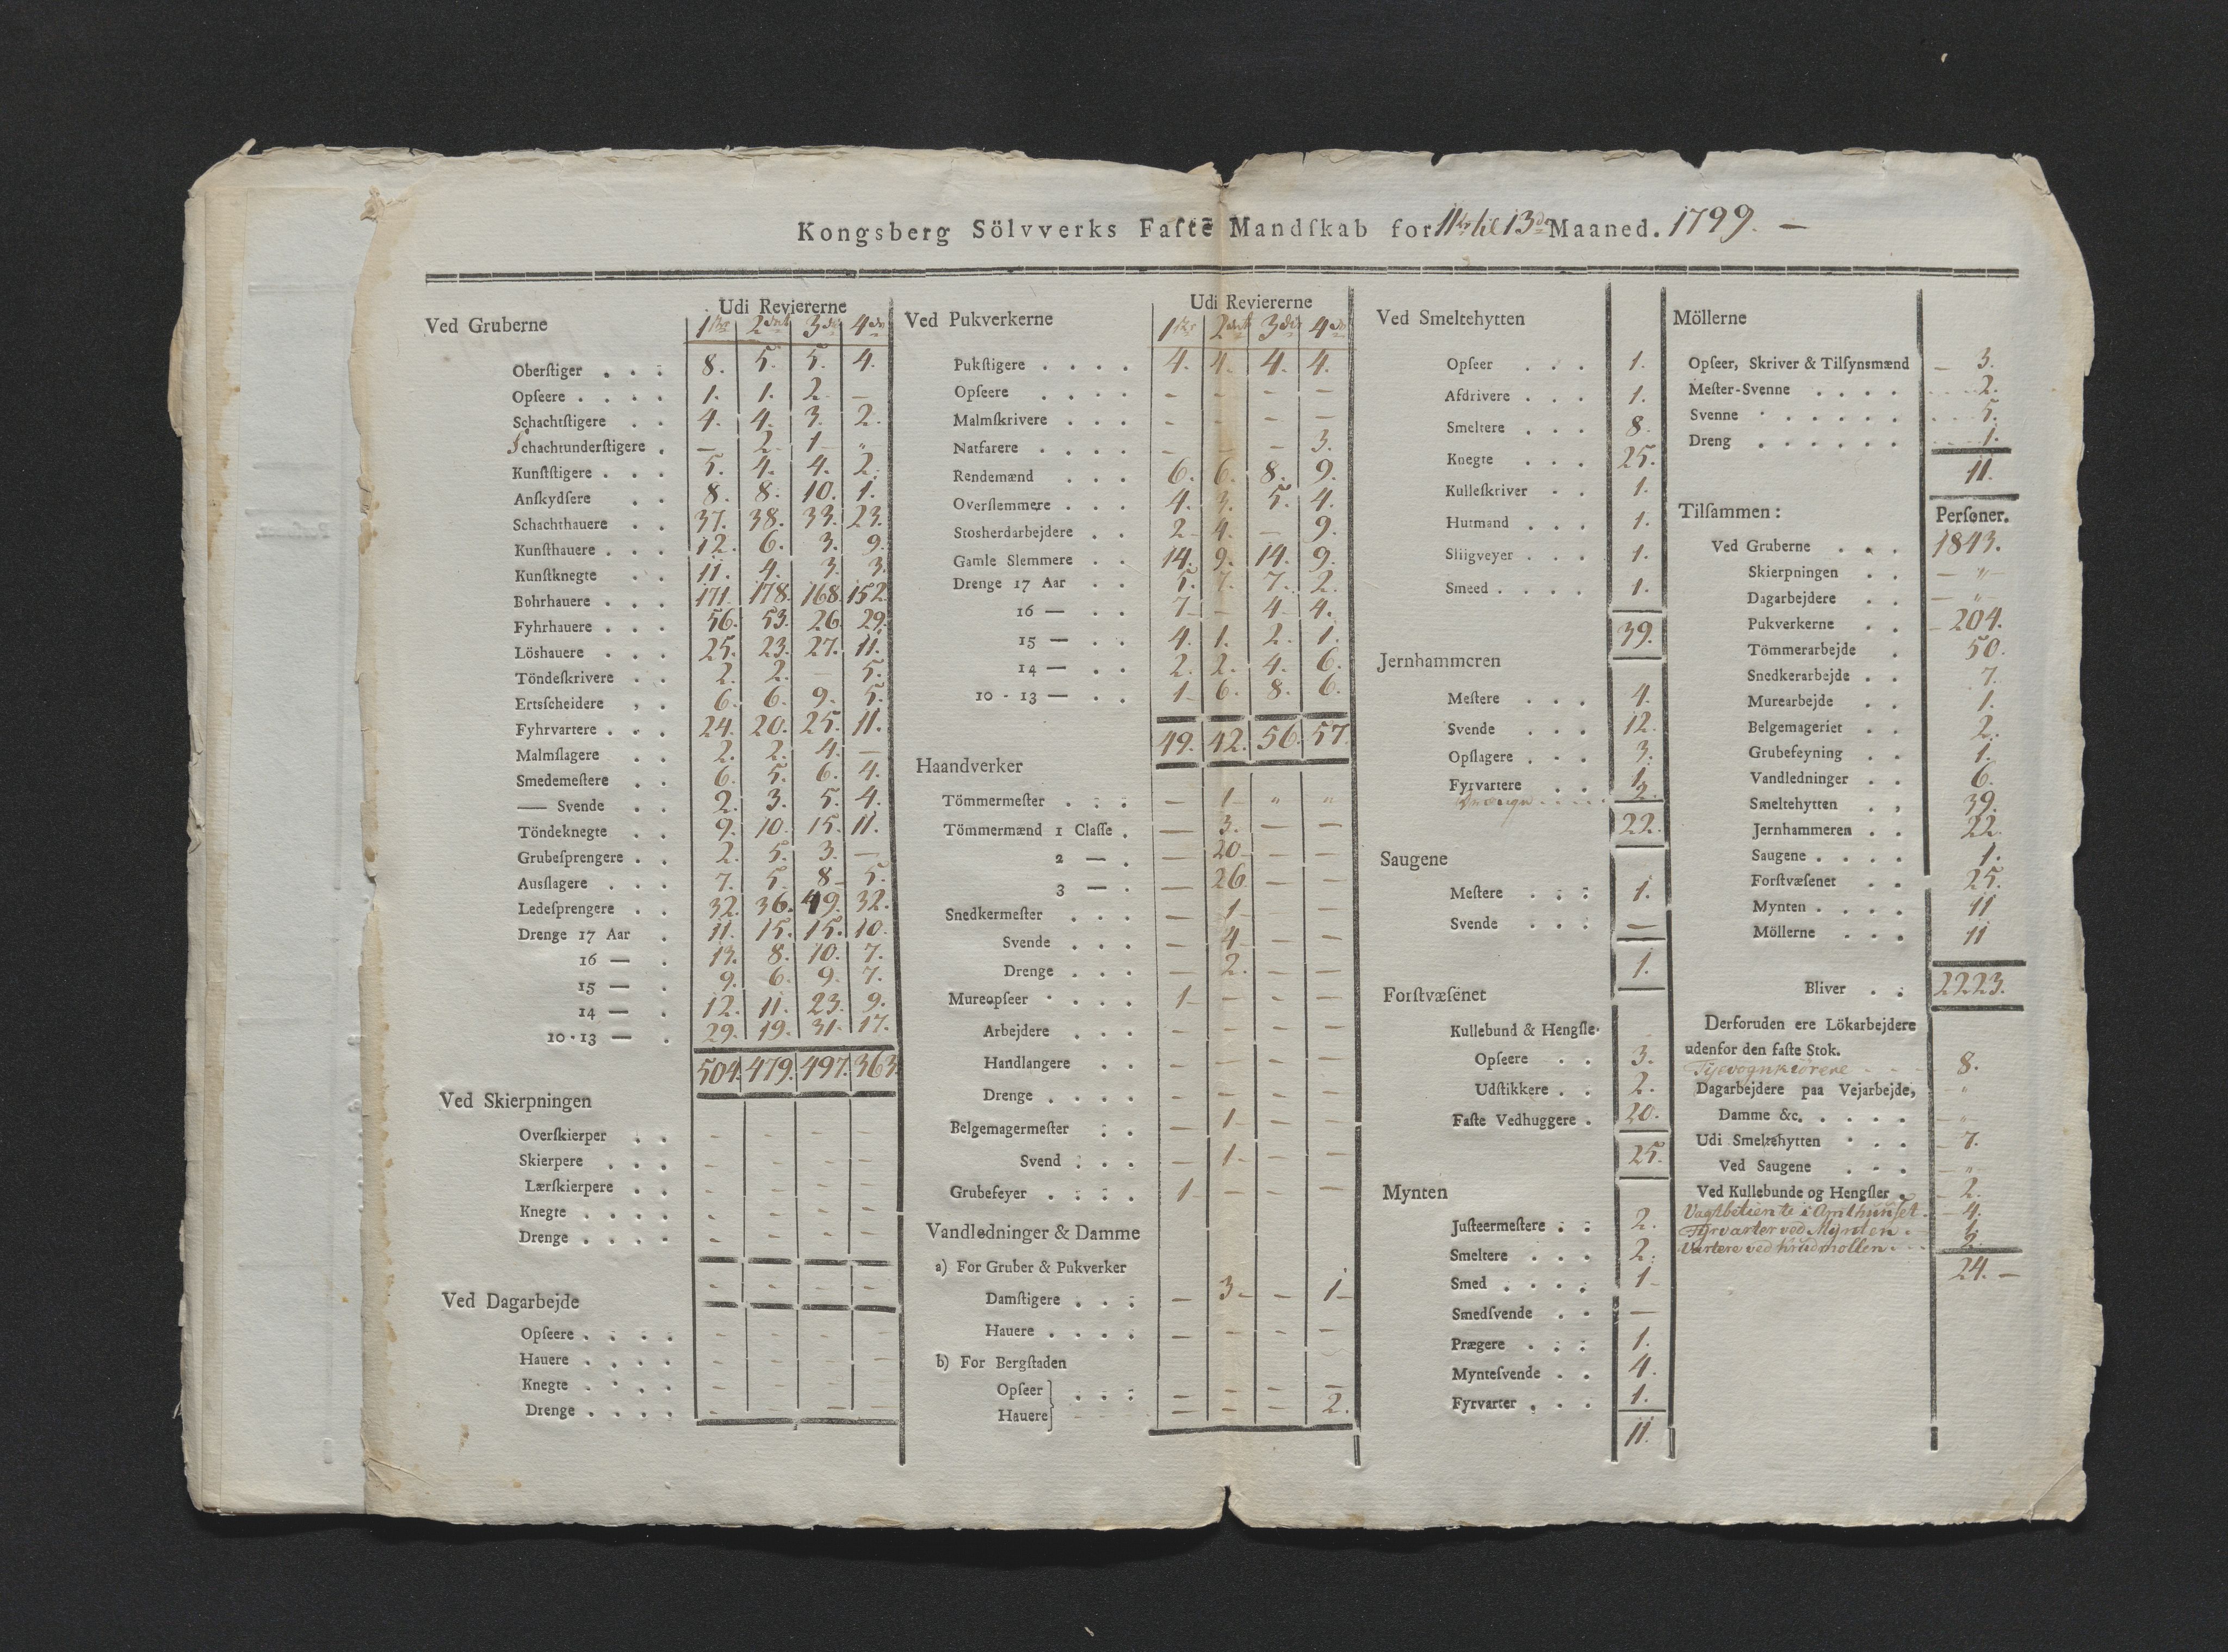 Kongsberg Sölvverks Faſte Mandſkab for 11te til 13de Maaned. 1799. —
Ved Gruberne
Udi Reviererne
1ste 2det 3die 4de
Oberſtiger . . . 8. 5. 5. 4.
Opſeere . . . . 1. 1. 2. —
Schachtſtigere . . 4. 4. 3. 2.
Schachtunderſtigere . — 2. 1 "
Kunſtſtigere . . . 5. 4. 4. 2.
Anſkydſere . . 8. 8. 10. 1.
Schachthauere . . 37. 38. 33. 23.
Kunſthauere . . . 12. 6. 3. 9.
Kunſtknegte . . 11. 4. 3. 3.
Bohrhauere . . . 171. 178. 168. 152.
Fyhrhauere . . . 56. 53. 26. 29.
Löshauere . . . 25. 23. 27. 11.
Töndeſkrivere . . 2. 2. — 5.
Ertsſcheidere . . 6. 6. 9. 5.
Fyhrvartere . . . 24. 20. 25. 11.
Malmſlagere . . 2. 2. 4. —
Smedemeſtere . . 6. 5. 6. 4.
— Svende . . 2. 3. 5. 4.
Töndeknegte . . 9. 10. 15. 11.
Grubeſprengere . . 2. 5. 3. —
Ausſlagere . . . 7. 5. 8. 5.
Ledeſprengere . . 32. 36. 49. 32.
Drenge 17 Aar . 11. 15. 15. 10.
16 — . 13. 8. 10. 7.
15 — . 9. 6. 9. 7.
14 — . 12. 11. 23. 9.
10-13 — . 29. 19. 31. 17.
504. 479. 497. 363.
Ved Skierpningen
Overſkierper . . - - - -
Skierpere . . . - - - -
Lærſkierpere . . - - - -
Knegte . . . . - - - -
Drenge . . . . - - - -
- - - -
Ved Dagarbejde
Opſeere . . . . - - - -
Hauere . . . . - - - -
Knegte . . . . - - - -
Drenge . . . . - - - -
Ved Pukverkerne
Udi Reviererne
1ste 2det 3die 4de
Pukſtigere . . . . 4. 4. 4. 4.
Opſeere . . . . - - - -
Malmſkrivere . . . - - - -
Natfarere . . . . - - - 3.
Rendemænd . . . 6. 6. 8. 9.
Overſlemmere . . . 4. 3. 5. 4.
Stosherdarbejdere . . 2. 4. — 9.
Gamle Slemmere . . 14. 9. 14. 9.
Drenge 17 Aar . . 5. 7. 7. 2.
16 — . . 7. — 4. 4.
15 — . . 4. 1. 2. 1.
14 — . . 2. 2. 4. 6.
10 - 13 — . . 1. 6. 8. 6.
49. 42. 56. 57.
Haandverker
Tömmermeſter . . . — 1 " "
Tömmermænd 1 Claſſe . — 3. — —
2 — . — 20 — —
3 — . — 26. — —
Snedkermeſter . . . — 1 —
Svende . . . — 4 — —
Drenge . . . — 2. — —
Mureopſeer . . . . 1 — — —
Arbejdere . . . — — — —
Handlangere . . — — — —
Drenge . . . . — — — —
Belgemagermeſter . . — 1 — —
Svend . . . — 1 — —
Grubefeyer . . . . 1 — — —
Vandledninger & Damme
a) For Gruber & Pukverker
Damſtigere . . . — 3 — 1
Hauere . . . . — — — —
b) For Bergſtaden
Opſeer } . . .
Hauere — — — 2.
Ved Smeltehytten
Opſeer . . . 1.
Afdrivere . . . 1.
Smeltere . . . 8.
Knegte . . . 25.
Kulleſkriver . . 1.
Hutmand . . . 1.
Sliigveyer . . . 1.
Smeed . . . . 1.
39.
Jernhammeren
Meſtere . . . 4.
Svende . . . 12.
Opſlagere . . . 3.
Fyrvartere . . 1.
Drenge . . . . 2.
22.
Saugene
Meſtere . . . 1.
Svende . . . —
1.
Forſtvæſenet
Kullebund & Hengſle-
Opſeere . . 3.
Udſtikkere . . 2.
Faſte Vedhuggere . 20.
25.
Mynten
Juſteermeſtere . . 2.
Smeltere . . . 2.
Smed . . . . 1
Smedſvende . . —
Prægere . . . 1.
Mynteſvende . . 4.
Fyrvarter . . . 1.
11.
Möllerne
Opſeer, Skriver & Tilſynsmænd 3.
Meſter-Svenne . . . . 2.
Svenne . . . . . . 5.
Dreng . . . . . . 1.
11.
Tilſammen: Perſoner.
Ved Gruberne . . . 1843.
Skierpningen . . — " —
Dagarbejdere . . — " —
Pukverkerne . . 204.
Tömmerarbejde . 50.
Snedkerarbejde . . 7.
Murearbejde . . 1.
Belgemageriet . . 2.
Grubefeyning . . 1.
Vandledninger . . 6.
Smeltehytten . . 39.
Jernhammeren . . 22.
Saugene . . . . 1.
Forſtvæſenet . . 25.
Mynten . . . . 11
Möllerne . . . 11
Bliver . . 2223.
Derforuden ere Lökarbejdere
udenfor den faſte Stok.
8.
Dagarbejdere paa Vejarbejde, "
Damme &c. . . . . "
Udi Smeltehytten . . . 7.
Ved Saugene . . . "
Ved Kullebunde og Hengſler . 2.
Vagtbetiente i Amthuuset . 4.
Fyrvarter ved Mynten . 1.
Vartere ved Krudmøllen . . 2.
24. —